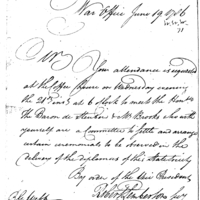 War Office June 19 1786
Sir
Your attendance is requested
at the Office Chamr on Wednesday evening
the 21st inst at 6 oClock to meet the Honble
The Baron de Steuben & Mr Brooks who with
yourself are a Committee to settle and arrange
certain memorials to be observed in the
delivery of the diplomas of this State Society
By order of the Vice President